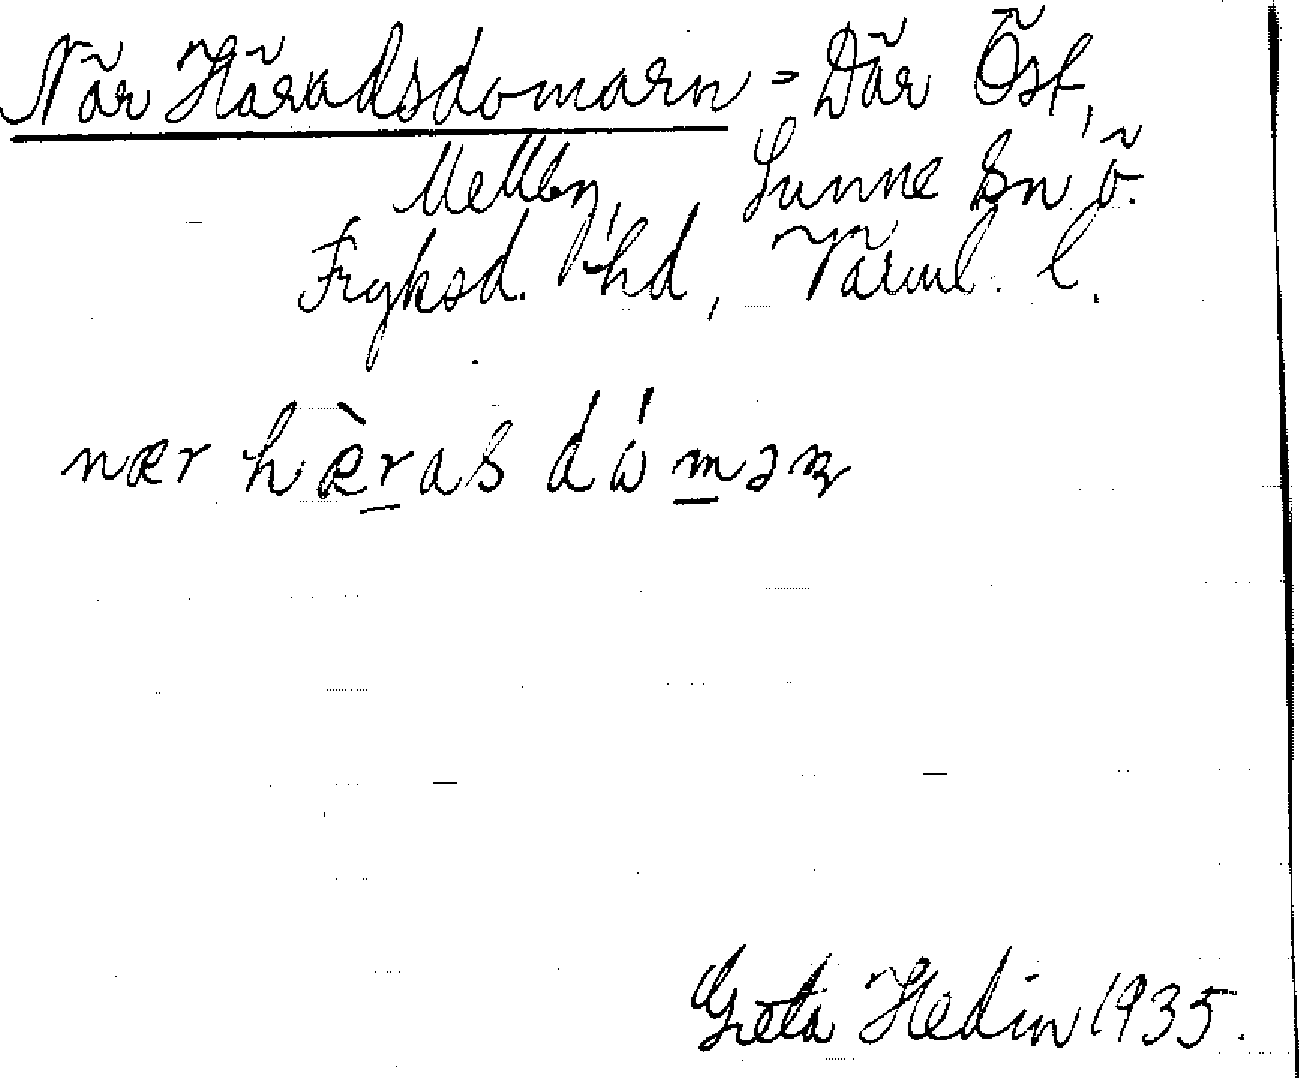 När Häradsdomarn = Där Öst,
Mellby, Sunne sn ö.
Fryksd. hd, Värml. l.
nær hæ̀ras dómən
Greta Hedin 1935.